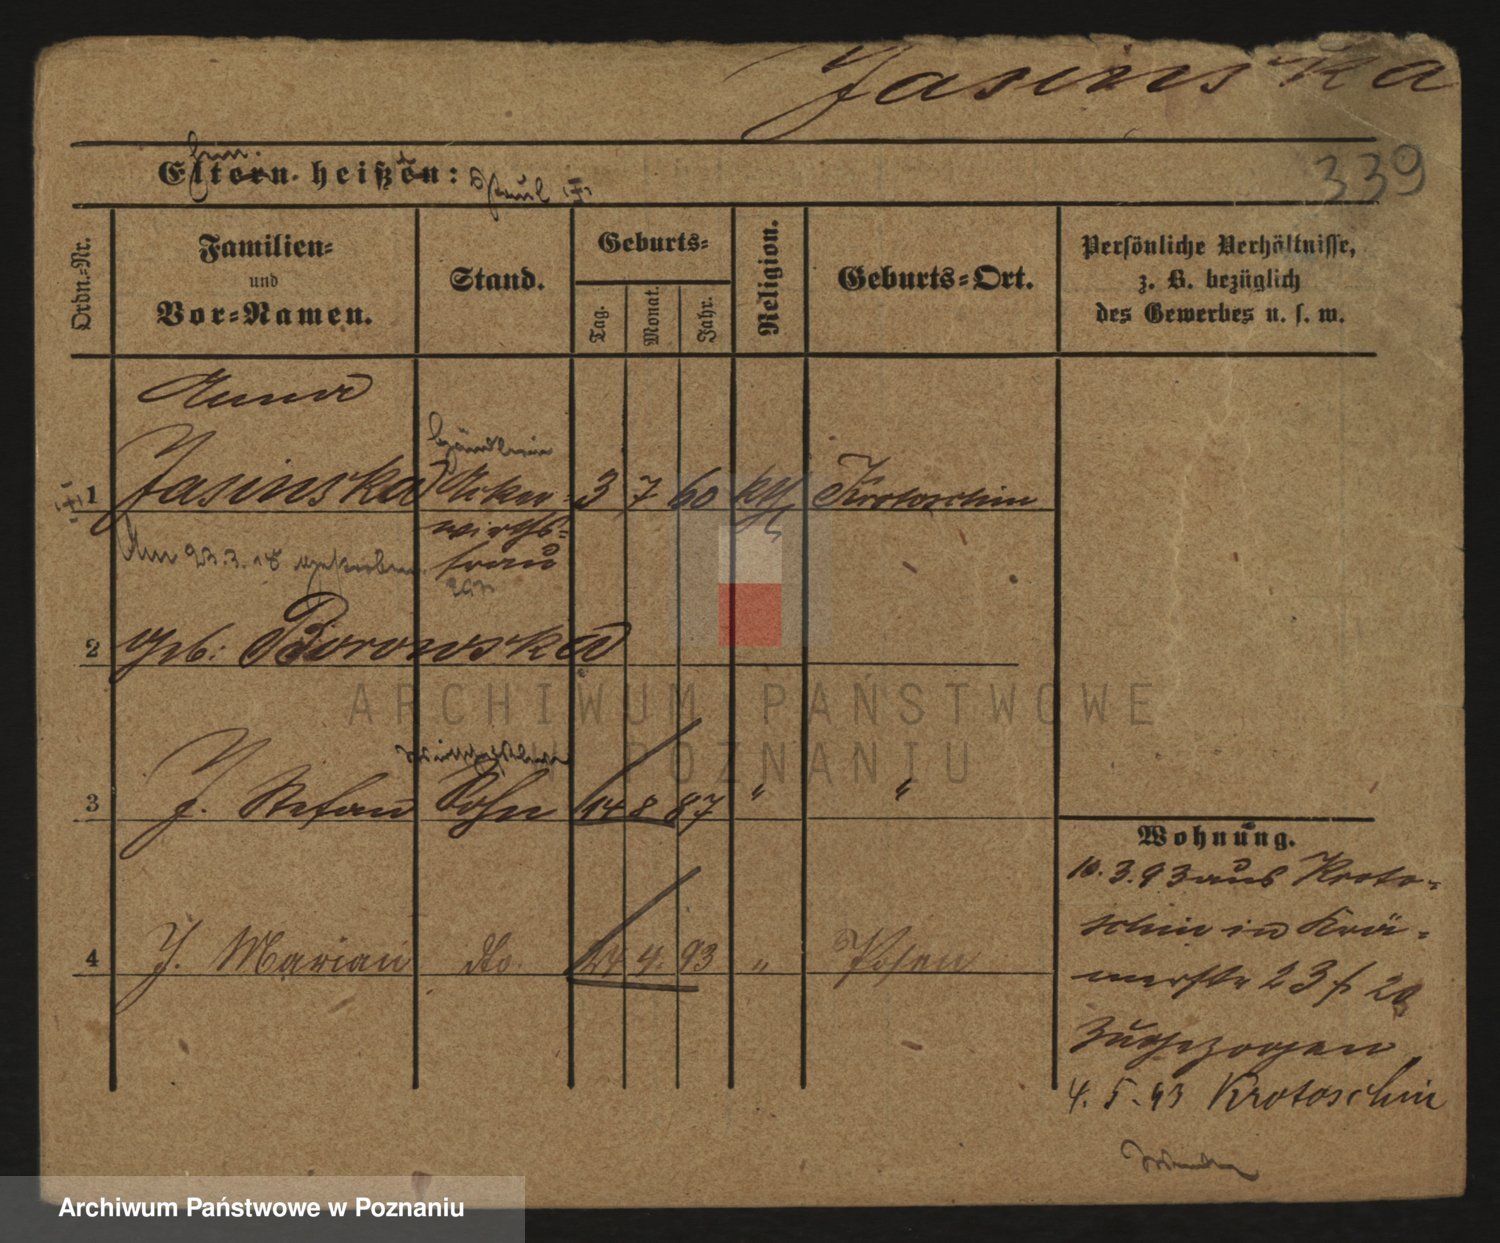 Jasinska
339
Eltern heißen: Paul
Ordn.-Nr.
Familien-
und
Vor-Namen.
Stand.
Geburts-
Tag.
Monat.
Jahr.
Religion.
Geburts-Ort.
Persönliche Verhältnisse,
z. B. bezüglich
des Gewerbes u. s. w.
Anna
Händlerin
1 Jasinska Acker- 3 7 60 kth Krotoschin
wirths-
Am 23.3.18 gestorben frau
2 geb. Borowska
3 J. Stefan Sohn 14 8 87 " "
4 J. Marian do. 24 4. 93 " Posen
Wohnung.
10.3.93 aus Kroto-
schin in Krä-
merstr 23 b 20
zugezogen
4.5.93 Krotoschin
ARCHIWUM PAŃSTWOWE
W POZNANIU
Archiwum Państwowe w Poznaniu